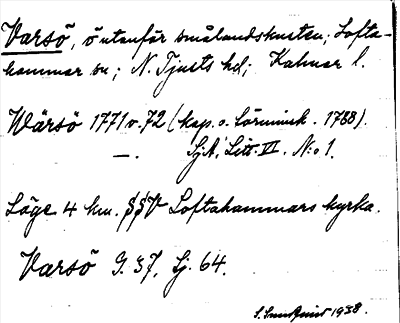 Varsö, ö utanför smålandskusten; Lofta-
hammar sn; N. Tjusts hd; Kalmar l.
Wärsö 1771 o. 72 (kap. o. Lörminsk. 1788).
—. SjA, Litt. VI. N:o 1.
Läge 4 km. SSV Loftahammars kyrka.
Varsö G. 37, Sj. 64.
1938.